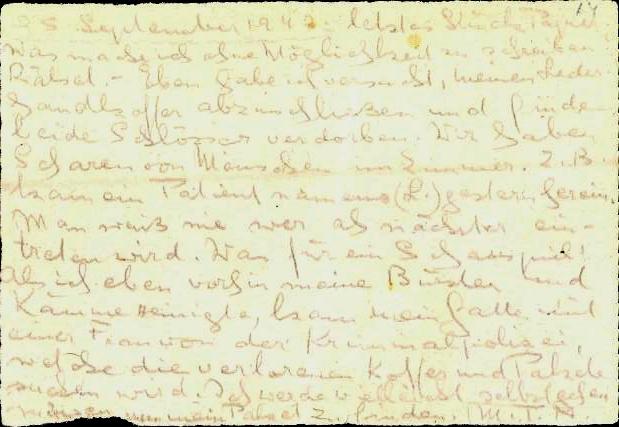 25 September 1943. letztes Stück Papier.
Was mache ich ohne Möglichkeit zu schreiben
Rätsel. - Eben habe ich versucht, meinen Leder-
handkoffer abzuschließen und finde
beide Schlösser verdorben. Wir haben
Scharen von Menschen im Zimmer. Z.B.
kam ein Patient namens (L.) gestern herein.
Man weiß nie wer als nächster ein-
treten wird. Was für ein Schauspiel!
Als ich eben vorhin meine Bürsten und
Kämme reinigte, kam mein Gatte mit
einer Frau von der Kriminalpolizei,
welche die verlorenen Koffer und Pakete
suchen wird. Ich werde vielleicht selbst gehen
müssen um mein Paket z. finden. M.T.N.